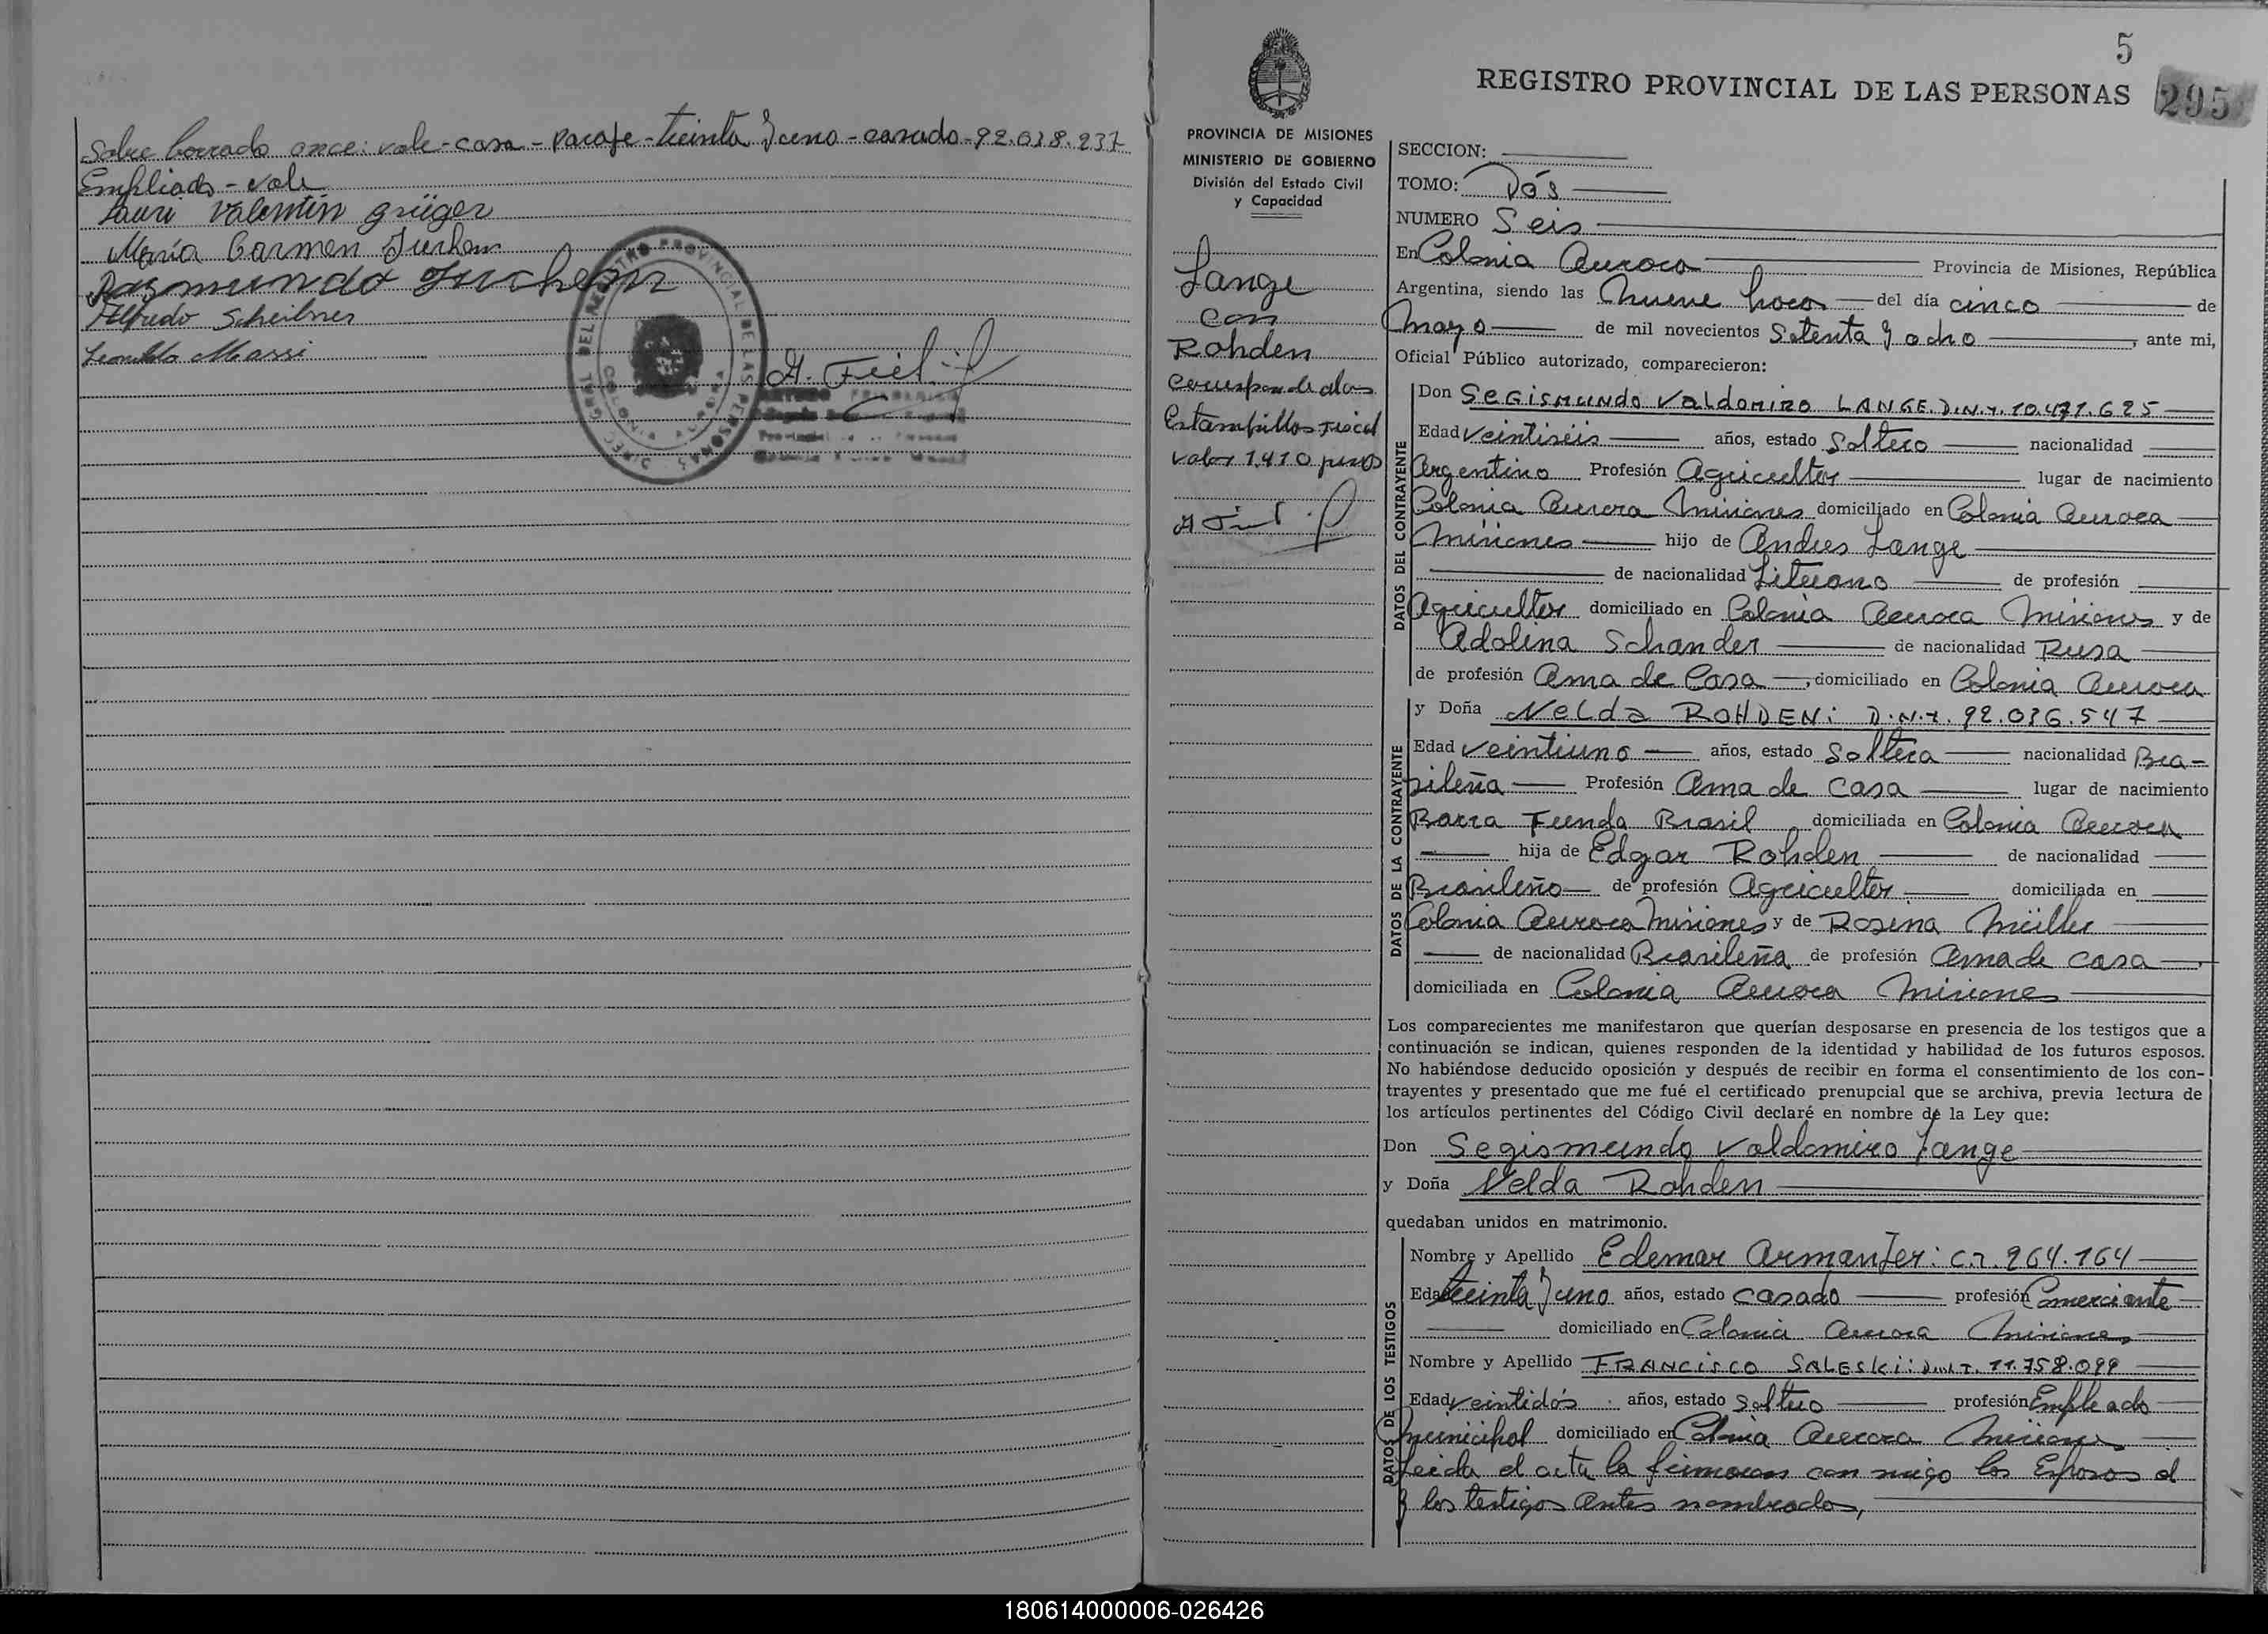 Sobre borrado once: vale - casa - Pacaje - treinta y uno - casado - 92.018.237
Empliado - vale
Lauri Valentin Grüger
María Carmen Juchem
Rasmundo Juchem
Alfredo Scheibner
Leonilda Massi
A. Fiel
5
REGISTRO PROVINCIAL DE LAS PERSONAS
295
PROVINCIA DE MISIONES
MINISTERIO DE GOBIERNO
División del Estado Civil
y Capacidad
Lange
con
Rohden
Corresponde a las
Estampillas Fiscal
valor 1.410 pesos
SECCION:
TOMO: Dós
NUMERO Seis
En Colonia Aurora Provincia de Misiones, República
Argentina, siendo las Nueve horas del día cinco de
Mayo de mil novecientos Setenta y ocho, ante mi,
Oficial Público autorizado, comparecieron:
DATOS DEL CONTRAYENTE
Don SEGISMUNDO VALDOMIRO LANGE. D.N.I. 10.471.625
Edad veintiséis años, estado Soltero nacionalidad
Argentino Profesión Agricultor lugar de nacimiento
Colonia Aurora Misiones domiciliado en Colonia Aurora
Misiones hijo de Andres Lange
de nacionalidad Lituano de profesión
Agricultor domiciliado en Colonia Aurora Misiones y de
Adolina Schander de nacionalidad Rusa
de profesión Ama de Casa, domiciliado en Colonia Aurora
DATOS DE LA CONTRAYENTE
y Doña NELDA ROHDEN: D.N.I. 92.036.547
Edad veintiuno años, estado Soltera nacionalidad Bra-
sileña Profesión Ama de casa lugar de nacimiento
Barra Funda Brasil domiciliada en Colonia Aurora
hija de Edgar Rohden de nacionalidad
Brasileño de profesión Agricultor domiciliada en
Colonia Aurora Misiones y de Rosina Müller
de nacionalidad Brasileña de profesión Ama de casa,
domiciliada en Colonia Aurora Misiones
Los comparecientes me manifestaron que querían desposarse en presencia de los testigos que a
continuación se indican, quienes responden de la identidad y habilidad de los futuros esposos.
No habiéndose deducido oposición y después de recibir en forma el consentimiento de los con-
trayentes y presentado que me fué el certificado prenupcial que se archiva, previa lectura de
los artículos pertinentes del Código Civil declaré en nombre de la Ley que:
Don Segismundo Valdomiro Lange
y Doña Nelda Rohden
quedaban unidos en matrimonio.
DATOS DE LOS TESTIGOS
Nombre y Apellido Edemar Armanjer: C.I. 264.164
Edad treinta y uno años, estado casado profesión Comerciante
domiciliado en Colonia Aurora Misiones
Nombre y Apellido FRANCISCO SALESKI: D.N.I. 11.758.099
Edad veintidós años, estado soltero profesión Empleado
Municipal domiciliado en Colonia Aurora Misiones
Leida el acta la firmaran con migo los Esposos
y los testigos antes nombrados,
180614000006-026426